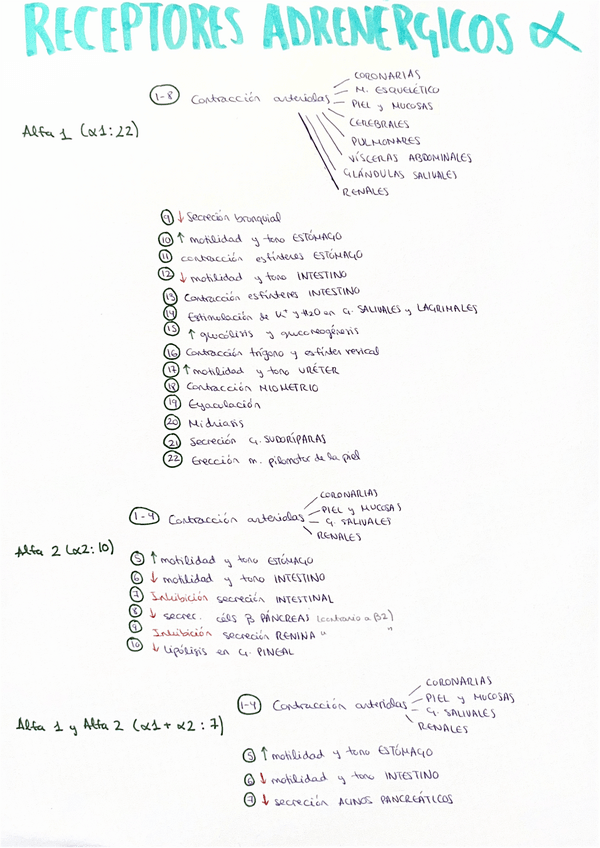 RECEPTORES ADRENÉRGICOS α
Alfa 1 (α1:22)
1-8 Contracción arteriolas
CORONARIAS
M. ESQUELÉTICO
PIEL y MUCOSAS
CEREBRALES
PULMONARES
VÍSCERAS ABDOMINALES
GLÁNDULAS SALIVALES
RENALES
9 ↓ secreción bronquial
10 ↑ motilidad y tono ESTÓMAGO
11 contracción esfínteres ESTÓMAGO
12 ↓ motilidad y tono INTESTINO
13 Contracción esfínteres INTESTINO
14 Estimulación de K⁺ y H2O en G. SALIVALES y LAGRIMALES
15 ↑ glucólisis y gluconeogénesis
16 Contracción trígono y esfínter vesical
17 ↑ motilidad y tono URÉTER
18 Contracción MIOMETRIO
19 Eyaculación
20 Midriasis
21 Secreción G. SUDORÍPARAS
22 Erección m. pilomotor de la piel
Alfa 2 (α2:10)
1-4 Contracción arteriolas
CORONARIAS
PIEL y MUCOSAS
G. SALIVALES
RENALES
5 ↑ motilidad y tono ESTÓMAGO
6 ↓ motilidad y tono INTESTINO
7 Inhibición secreción INTESTINAL
8 ↓ secrec. céls β PÁNCREAS (contrario a β2)
9 Inhibición secreción RENINA " "
10 ↓ lipólisis en G. PINEAL
Alfa 1 y Alfa 2 (α1 + α2 : 7)
1-4 Contracción arteriolas
CORONARIAS
PIEL y MUCOSAS
G. SALIVALES
RENALES
5 ↑ motilidad y tono ESTÓMAGO
6 ↓ motilidad y tono INTESTINO
7 ↓ secreción ACINOS PANCREÁTICOS